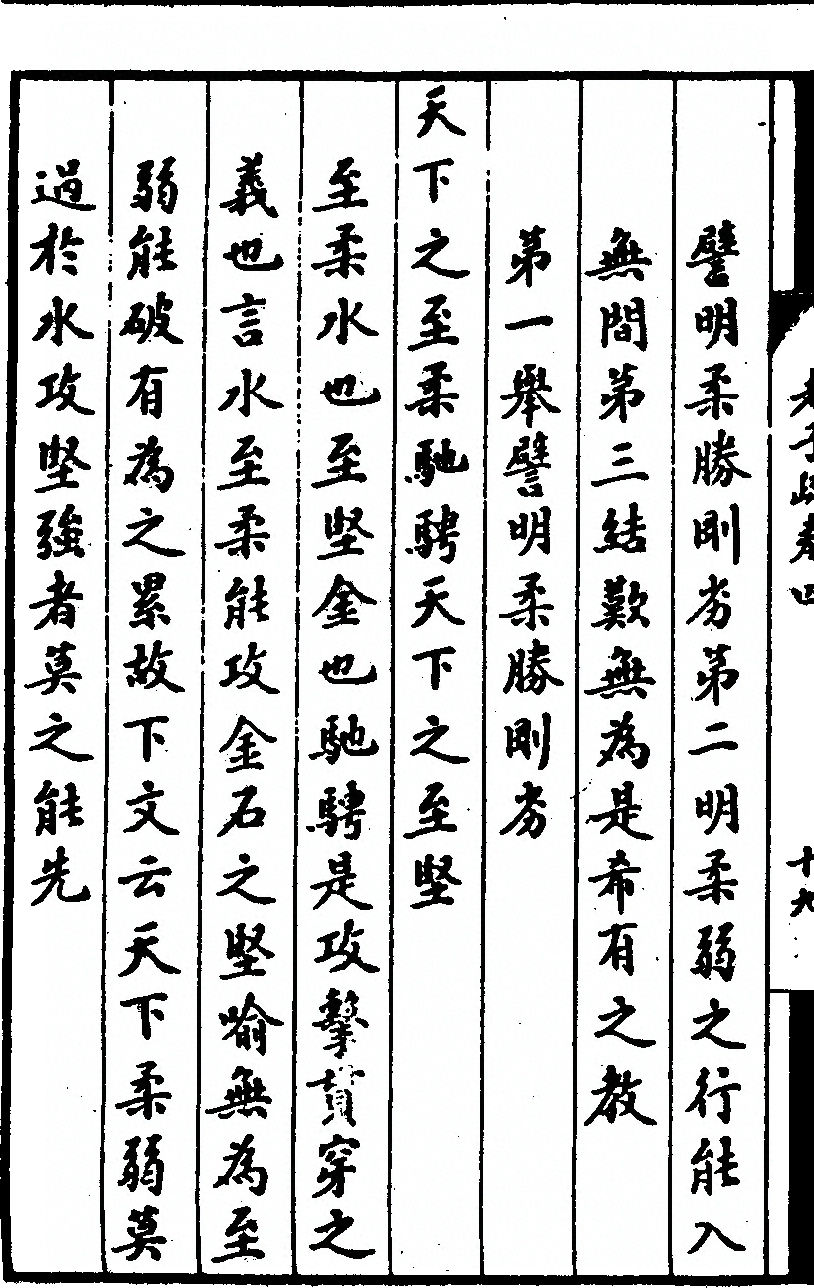 老子疏卷四
十九
譬明柔勝剛劣第二明柔弱之行能入
無間第三結歎無為是希有之教
第一舉譬明柔勝剛劣
天下之至柔馳騁天下之至堅
至柔水也至堅金也馳騁是攻擊貫穿之
義也言水至柔能攻金石之堅喻無為至
弱能破有為之累故下文云天下柔弱莫
過於水攻堅強者莫之能先